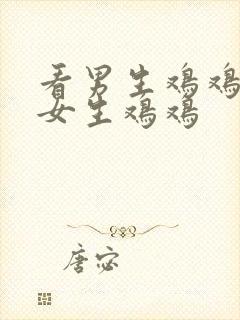 看男生鸡鸡
女生鸡鸡
唐宓